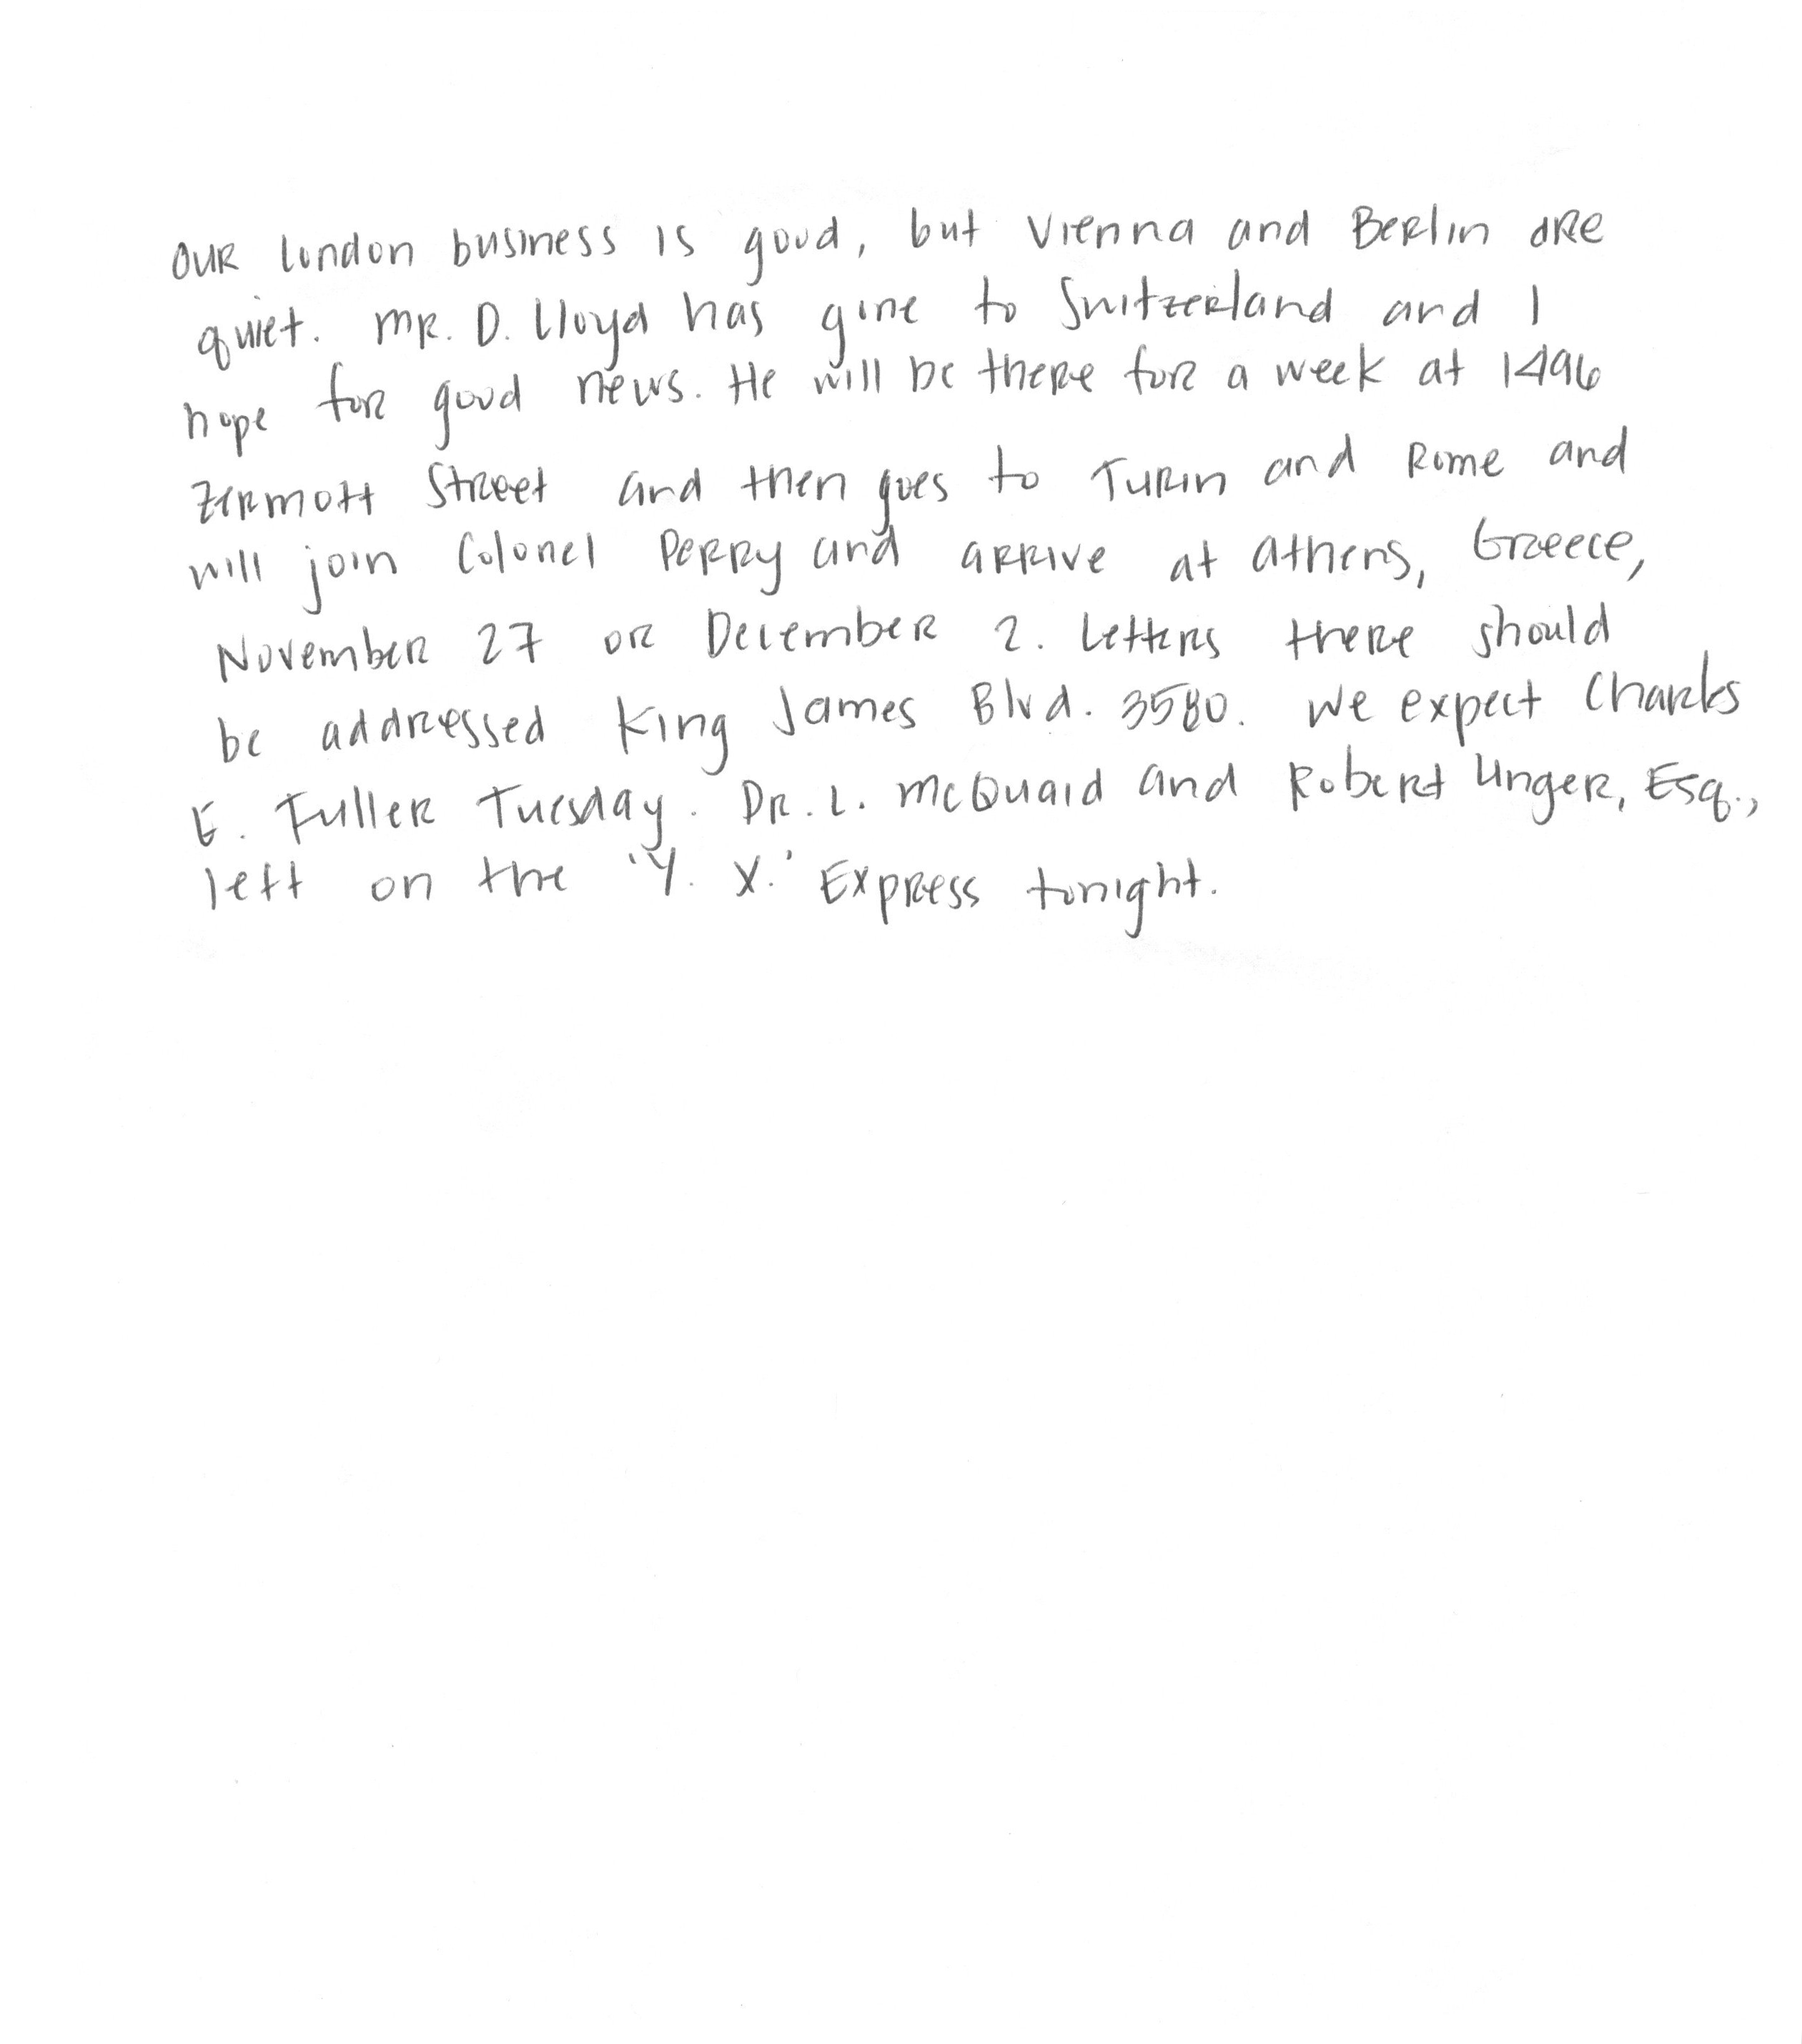 Our London business is good, but Vienna and Berlin are
quiet. Mr. D. Lloyd has gone to Switzerland and I
hope for good news. He will be there for a week at 1496
Zermott Street and then goes to Turin and Rome and
will join Colonel Perry and arrive at Athens, Greece,
November 27 or December 2. Letters there should
be addressed King James Blvd. 3580. We expect Charles
E. Fuller Tuesday. Dr. L. McQuaid and Robert Unger, Esq.,
left on the 'Y. X.' Express tonight.